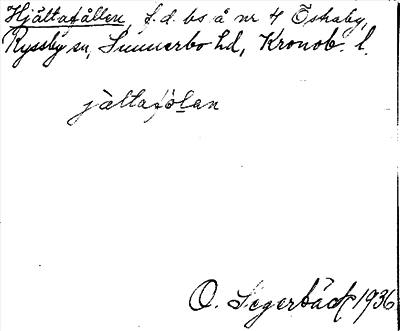 Hjältafållen, f.d. bs å nr 4 Öshaby,
Ryssby sn, Sunnerbo hd, Kronob. l.
jàltafòlan
O. Segerbäck 1936